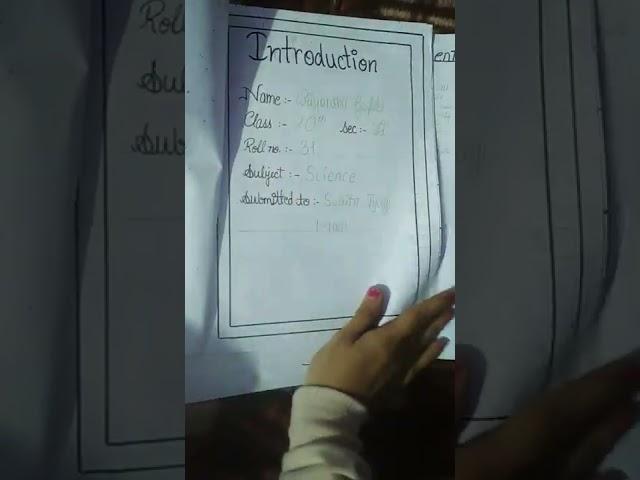 Introduction
Name :-
Class :- 10th sec :- A
Roll no. :- 31
Subject :- Science
Submitted to :-